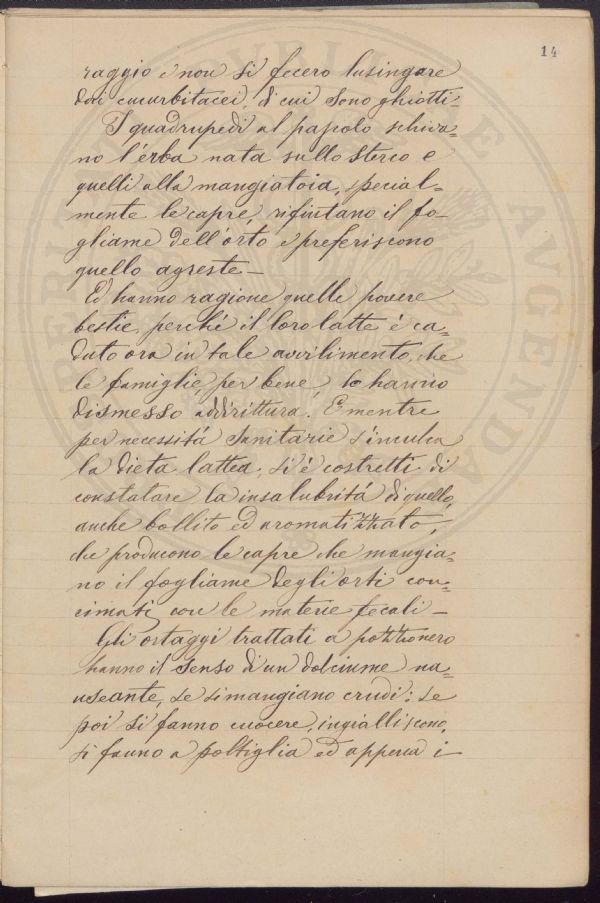 14
raggio e non si fecero lusingare
dai cucurbitacei, di cui sono ghiotti-
I quadrupedi al pascolo schiva=
no l'erba nata sullo sterco e
quelli alla mangiatoia, special=
mente le capre, rifiutano il fo-
gliame dell'orto e preferiscono
quello agreste-
Ed hanno ragione quelle povere
bestie, perché il loro latte è ca=
duto ora in tale avvilimento, che
le famiglie, per bene, lo hanno
dismesso addirittura. E mentre
per necessitá sanitarie s'inculca
la dieta lattea, si è costretti di
constatare la insalubritá di quello,
anche bollito ed aromatizzato,
che producono le capre che mangia=
no il fogliame degli orti con=
cimati con le materie fecali-
Gli ortaggi trattati a pozzonero
hanno il senso d'un dolciume na=
useante, se si mangiano crudi: se
poi si fanno cuocere, ingialliscono,
si fanno a poltiglia ed appena i
PERI
AVGENDA